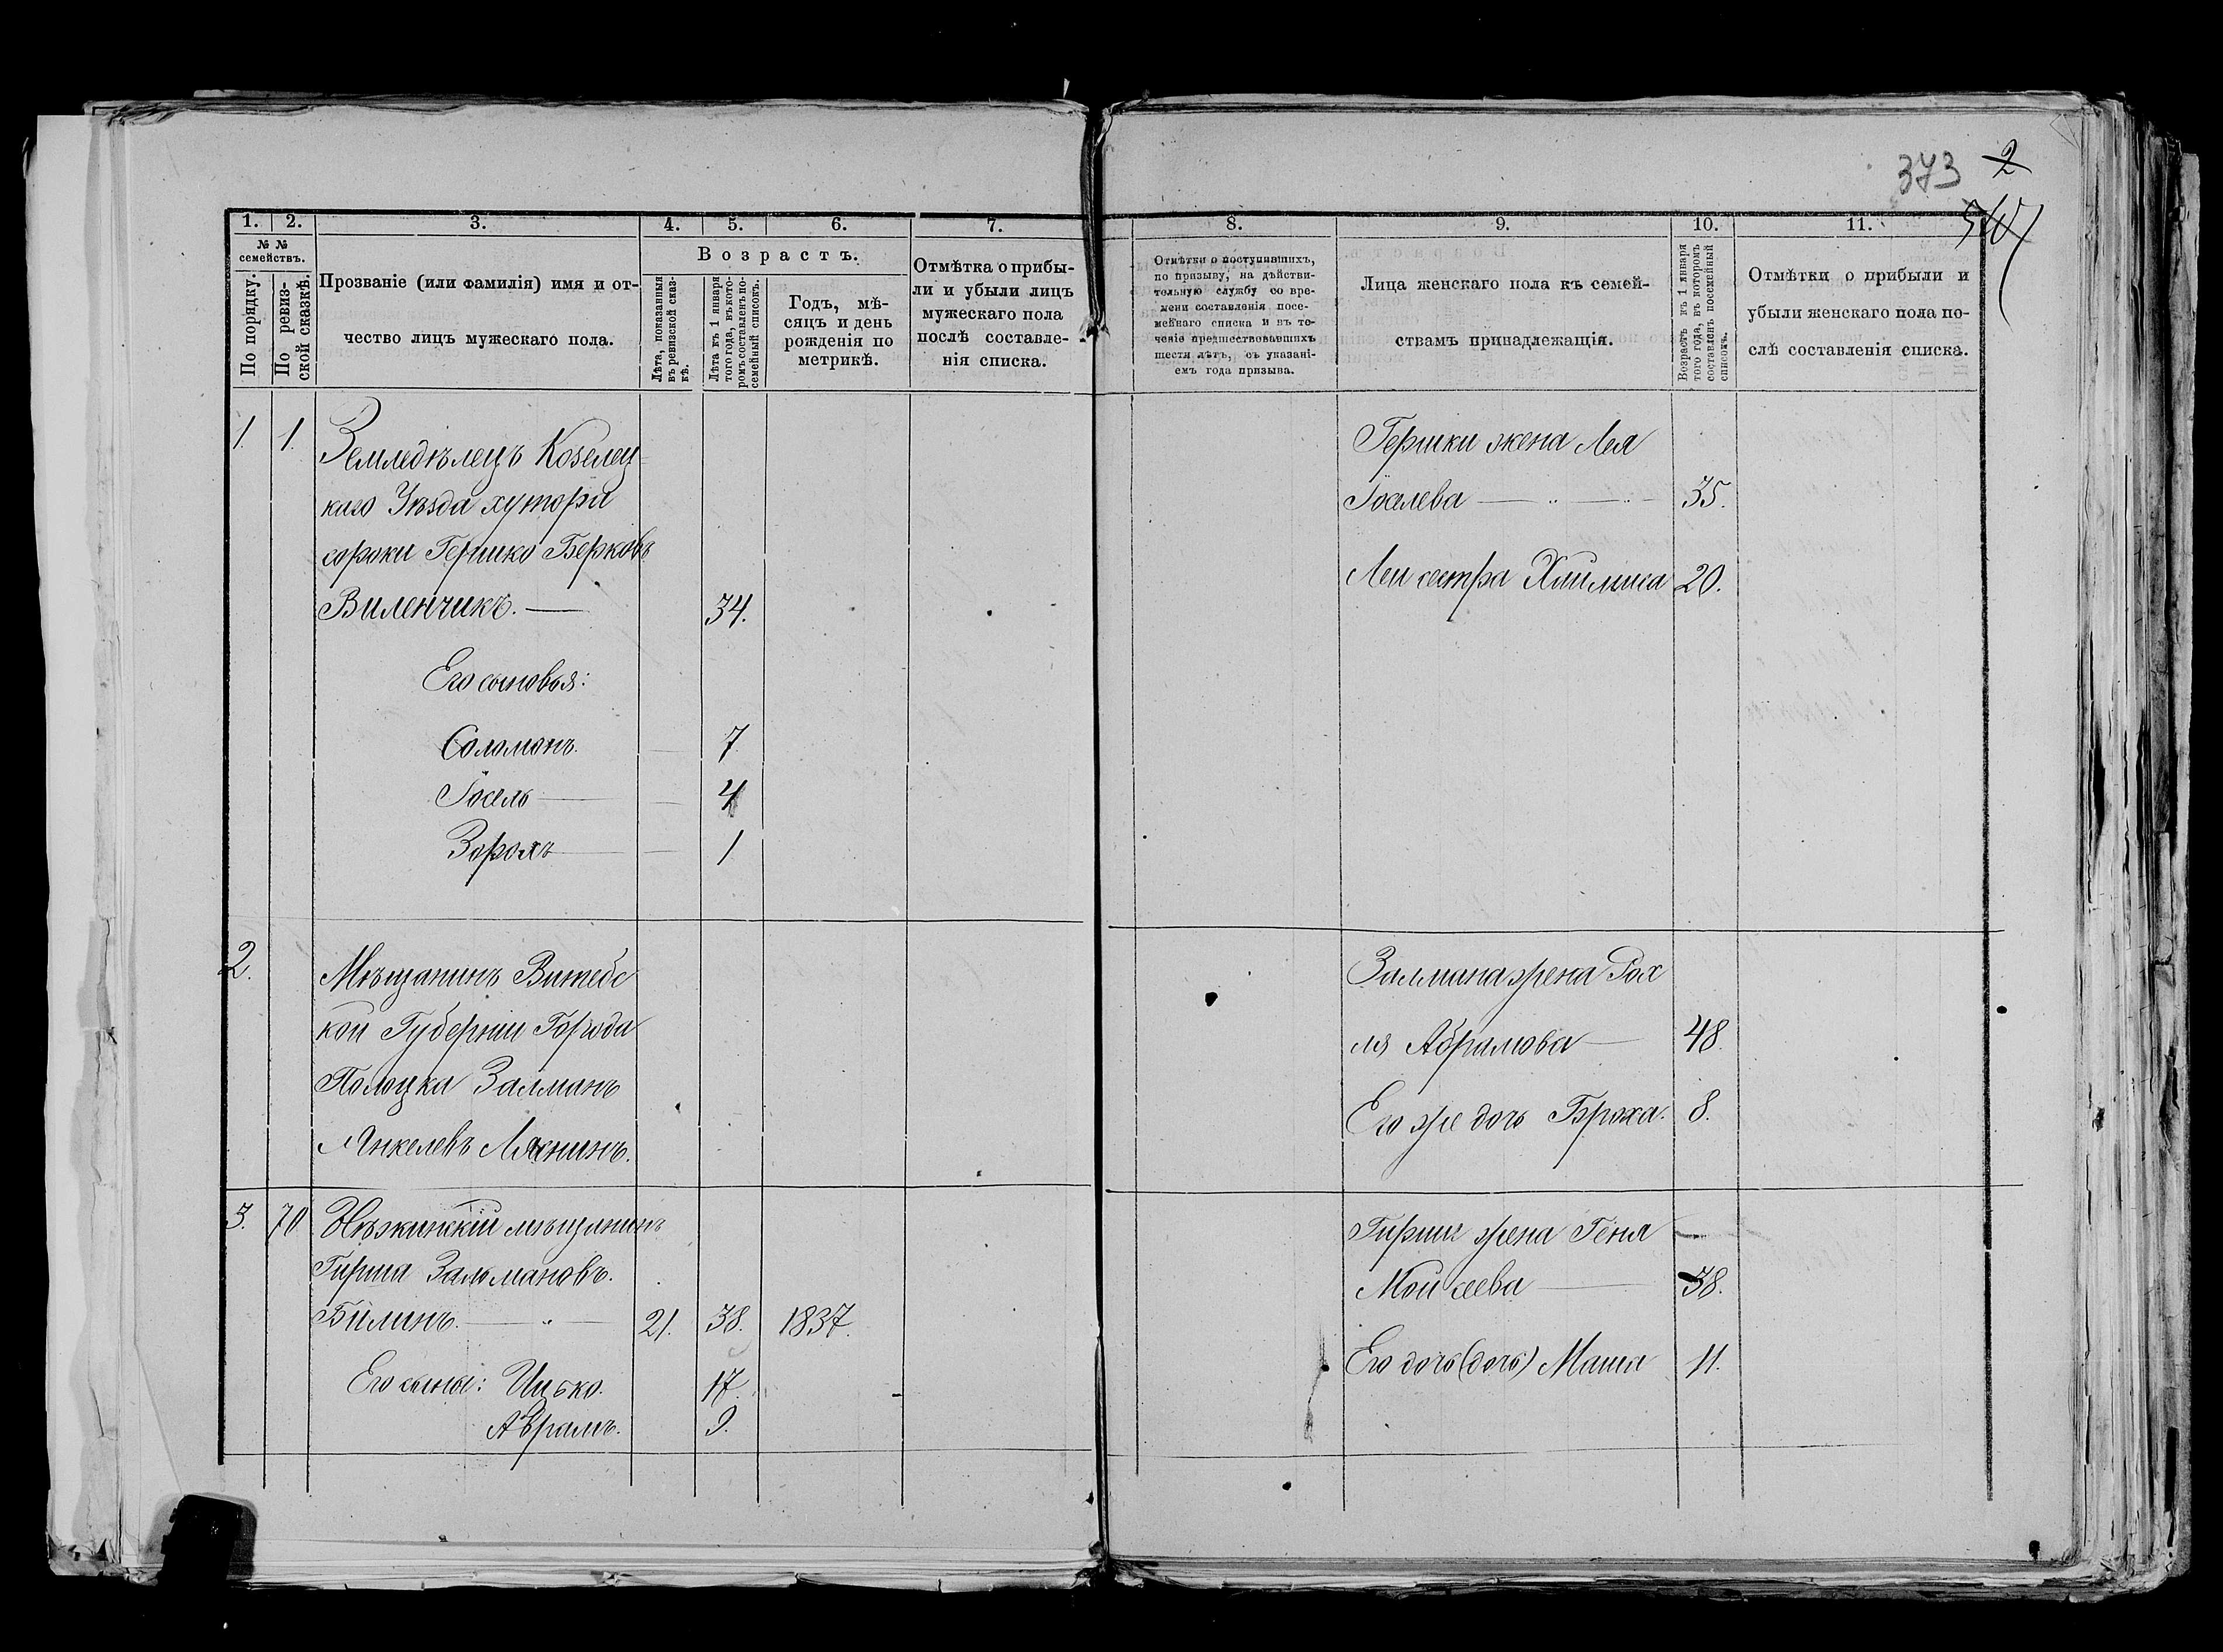 373 2
1. 2. 3. 4. 5. 6. 7.
№ №
семействъ.
По порядку.
По ревиз-
ской сказкѣ.
Прозваніе (или фамилія) имя и от-
чество лицъ мужескаго пола.
Возрастъ.
Лѣта, показанныя
въ ревизской сказ-
кѣ.
Лѣта къ 1 января
того года, въ кото-
ромъ составленъ по-
семейный списокъ.
Годъ, мѣ-
сяцъ и день
рожденія по
метрикѣ.
Отмѣтка о прибы-
ли и убыли лицъ
мужескаго пола
послѣ составле-
нія списка.
8. 9. 10. 11.
Отмѣтки о поступившихъ,
по призыву, на дѣйстви-
тельную службу со вре-
мени составленія посе-
мейнаго списка и въ те-
ченіе предшествовавшихъ
шести лѣтъ, съ указані-
емъ года призыва.
Лица женскаго пола къ семей-
ствамъ принадлежащія.
Возрастъ къ 1 января
того года, въ которомъ
составленъ посемейный
списокъ.
Отмѣтки о прибыли и
убыли женскаго пола по-
слѣ составленія списка.
1. 1. Земледѣлецъ Козелец-
каго Уѣзда хутора
сороки Гершко Берковъ
Виленчикъ. — 34.
Его сыновья:
Соломонъ. 7
Іосель — 4
Зорохъ — 1
Гершки жена Лея
Іоселева — 35.
Леи сестра 20.
2. Мѣщанинъ Витебс
кой Губерніи Города
Полоцка Залманъ
Янкелевъ Ляхнинъ.
Залмана жена Рох
ля Абрамова — 48.
Его же дочь Броха. 8.
3. 70 Нѣжинскій мѣщанинъ
Гирша Зальмановъ.
Билинъ. — 21. 38. 1837.
Его сыны: Ицько. 17.
Аврамъ. 9.
Гирши жена Геня —
Мойсеева — 38.
Его дочь (дочь) Маша 11.